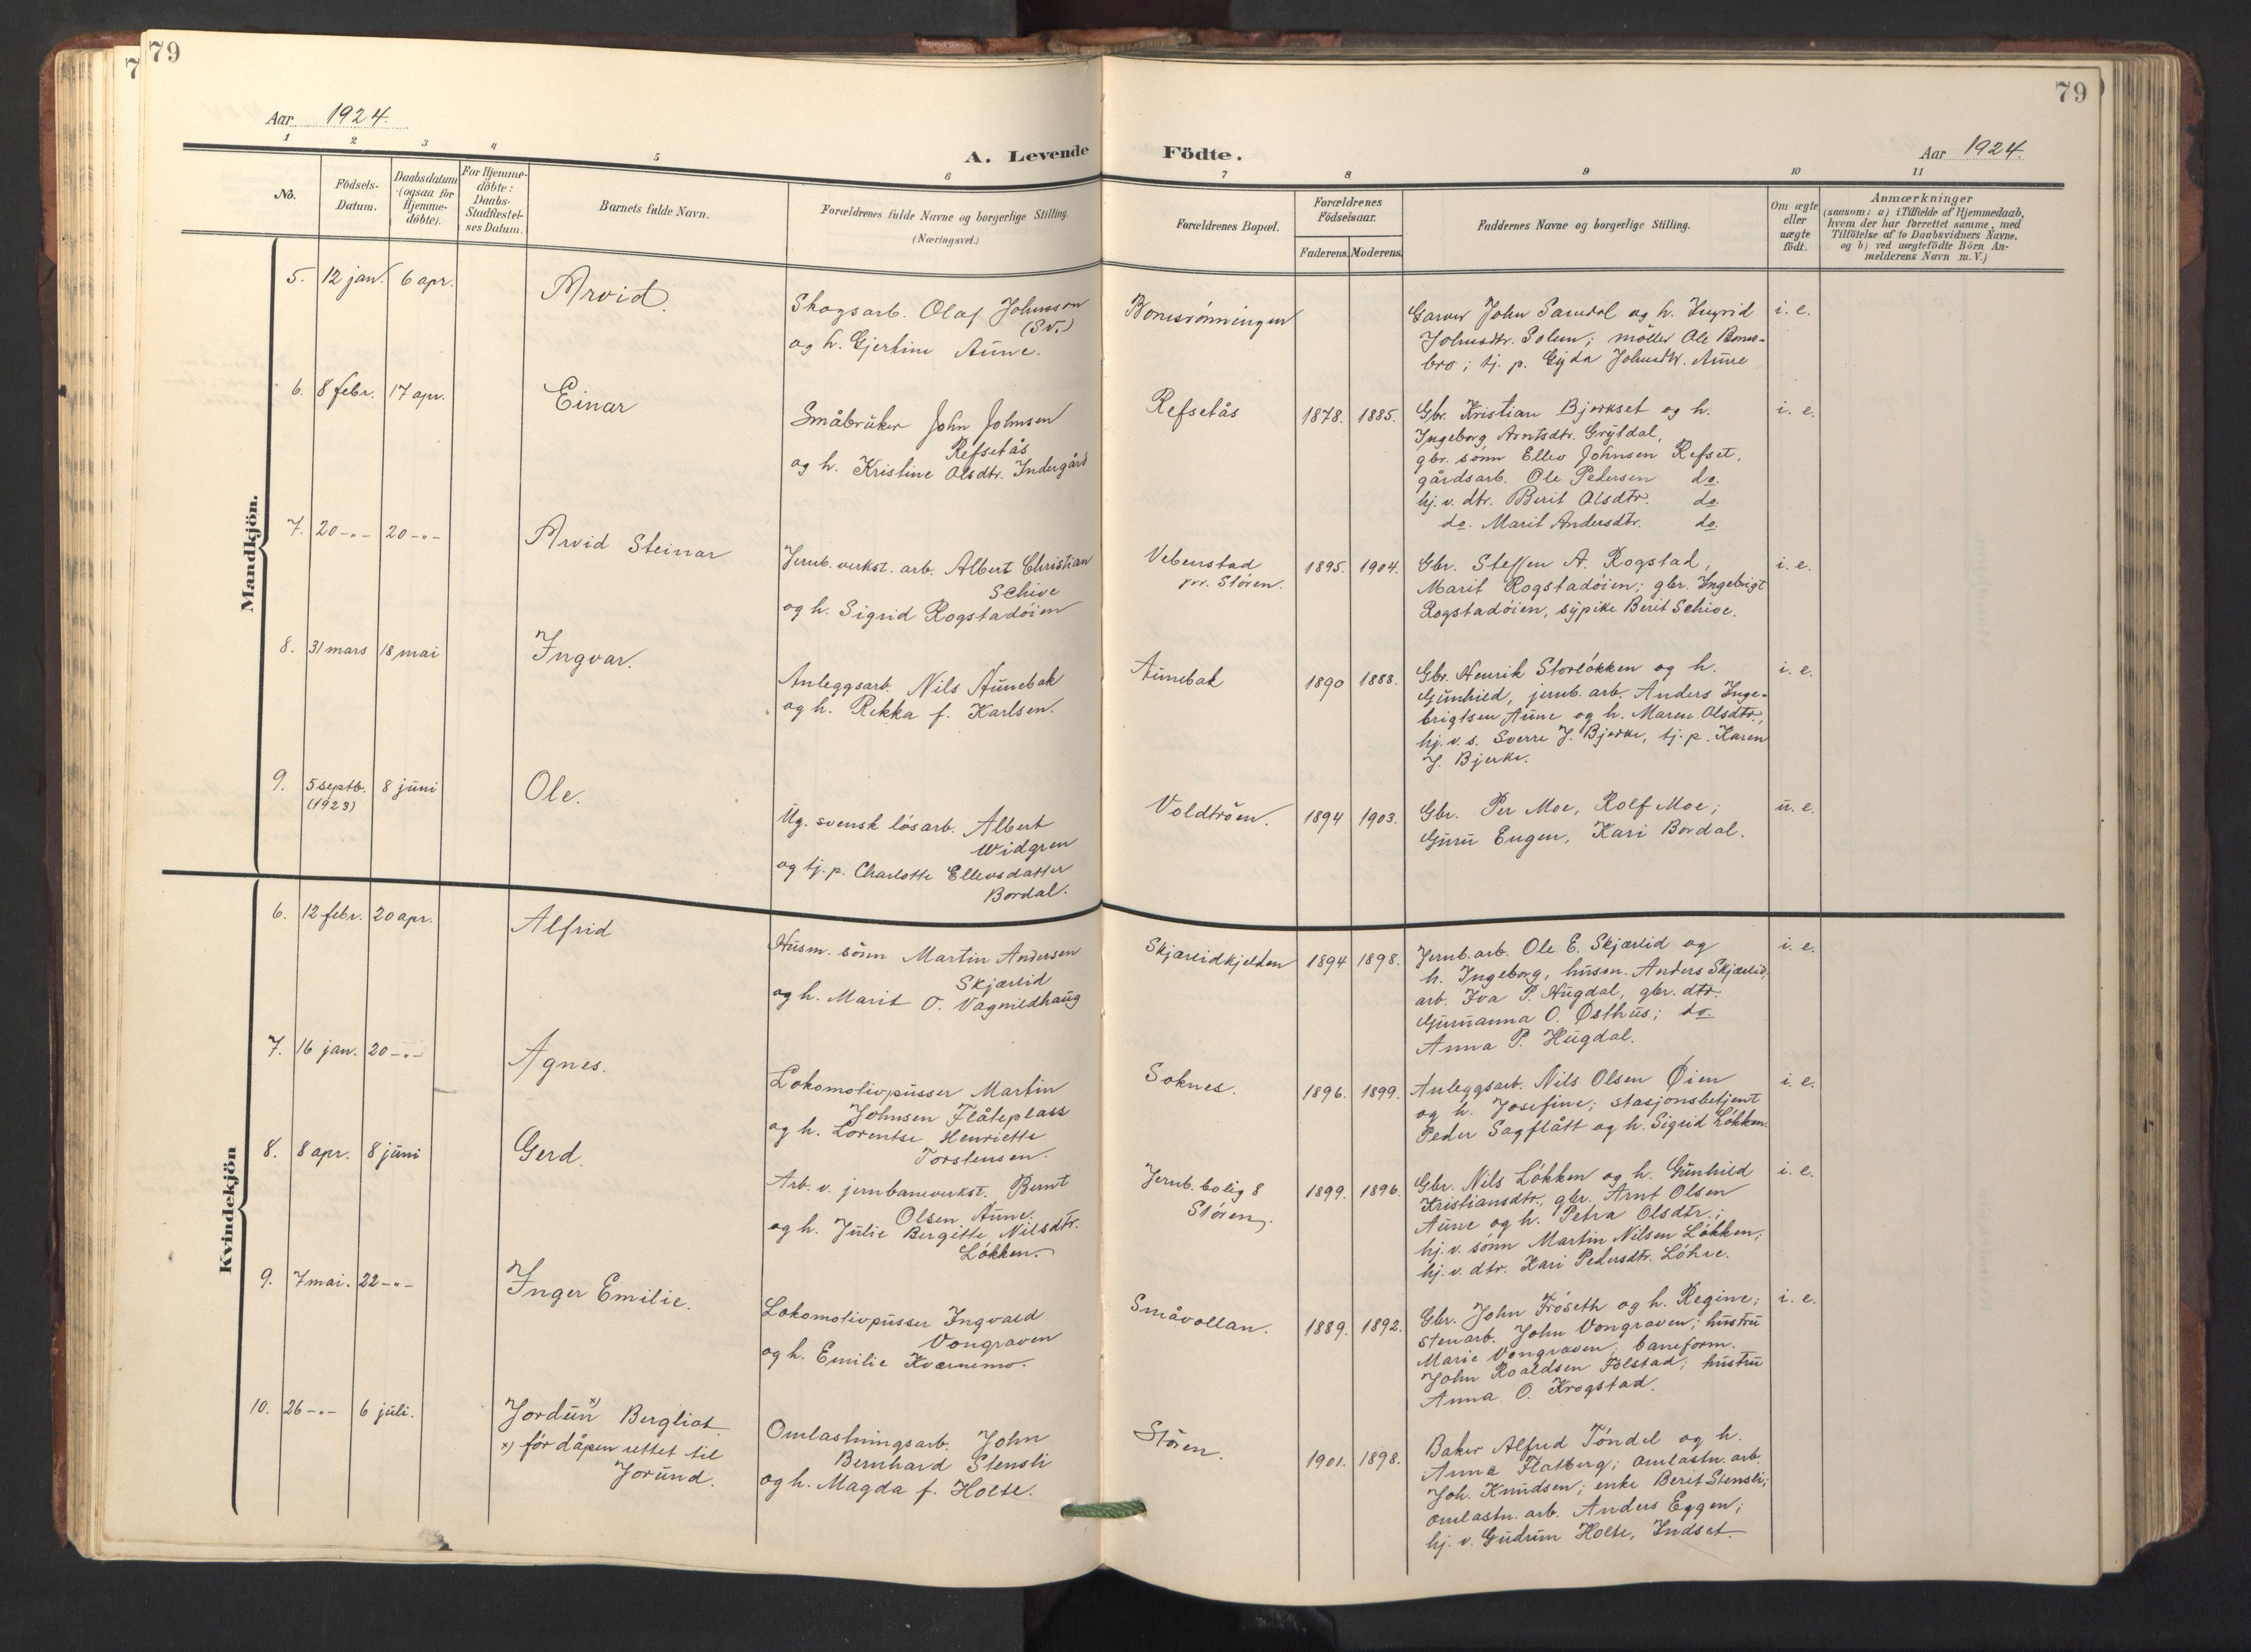 79
7
79
Aar 1924.
Aar 1924.
A. Levende Födte.
1 2 3 4 5 6 7 8 9 10 11
No.
Födsels-
Datum.
Daabsdatum
(ogsaa for
Hjemme-
döbte).
For Hjemme-
döbte:
Daabs-
Stadfæstel-
ses Datum.
Barnets fulde Navn.
Forældrenes fulde Navne og borgerlige Stilling.
(Næringsvei.)
Forældrenes Bopæl.
Forældrenes
Födselsaar.
Faderens. Moderens.
Faddernes Navne og borgerlige Stilling.
Om ægte
eller
uægte
födt.
Anmærkninger
(saasom: a) i Tilfælde af Hjemmedaab,
hvem der har forrettet samme, med
Tilföielse af to Daabsvidners Navne,
og b) ved uægtefödte Börn An-
melderens Navn m. V.)
Mandkjön.
5. 12 jan. 6 apr. Arvid.
Skogsarb. Olaf Johnsson
(Sv.)
og h. Gjertine Aune.
Bonesrönningen
Garver John Samdal og h. Ingrid
Johnsdtr. Solem; möller Ole Bones-
bro; tj. p. Gyda Johnsdtr. Aune
i. e.
6. 8 febr. 17 apr. Einar
Småbruker John Johnsen
Refsetås
og h. Kristine Olsdtr. Indergård
Refsetås 1878. 1885.
Gbr. Kristian Bjørkset og h.
Ingeborg Arntsdtr. Grytdal,
gbr. sönn Ellev Johnsen Refset,
gårdsarb. Ole Pedersen do.
hj. v. dtr. Berit Olsdtr. do.
do. Marit Andersdtr. do.
i. e.
7. 20 -"- 20 -"- Arvid Steinar
Jernb. verkst. arb. Albert Christian
Schive
og h. Sigrid Rogstadöien
Vebenstad
pr. Stören.
1895. 1904.
Gbr. Steffen A. Rogstad,
Marit Rogstadöien; gbr. Ingebrigt
Rogstadöien, sypike Berit Schive.
i. e.
8. 31 mars 18 mai Ingvar.
Anleggsarb. Nils Aunebak
og h. Rekka f. Karlsen.
Aunebak 1890 1888.
Gbr. Henrik Storlökken og h.
Gunhild, jernb. arb. Anders Inge-
brigtsen Aune og h. Maren Olsdtr.,
hj. v. s. Sverre J. Bjerke, tj. p. Karen
J. Bjerke.
i. e.
9. 5 septb. (1923) 8 juni Ole.
Ug. svensk lösarb. Albert
Widgren
og tj. p. Charlotte Ellevsdatter
Bordal.
Voldtröen. 1894 1903.
Gbr. Per Moe, Rolf Moe;
Guru Eugen, Kari Bordal.
u. e.
Kvindekjön
6. 12 febr. 20 apr. Alfrid
Husm. sönn Martin Andersen
Skjærlid
og h. Marit O. Vagnildhaug
Skjærlidkjelden 1894 1898.
Jernb. arb. Ole E. Skjærlid og
h. Ingeborg, husm. Anders Skjærlid,
arb. Iva P. Hugdal, gbr. dtr.
Guruanna O. Østhus; do.
Anna P. Hugdal.
i. e.
7. 16 jan. 20 -"- Agnes.
Lokomotivpusser Martin
Johnsen Flåteplass
og h. Lorentse Henriette
Torstensen.
Soknes. 1896. 1899.
Anleggsarb. Nils Olsen Øien
og h. Josefine; stasjonsbetjent
Peder Sagflått og h. Sigrid Lökken.
i. e.
8. 8 apr. 8 juni Gerd.
Arb. v. jernbaneverkst. Bernt
Olsen Aune.
og h. Julie Bergitte Nilsdtr.
Lökken.
Jernb. bolig 8
Stören.
1899. 1896.
Gbr. Nils Lökken og h. Gunhild
Kristiansdtr., gbr. Arnt Olsen
Aune og h. Petra Olsdtr.;
hj. v. sönn Martin Nilsen Lökken;
hj. v. dtr. Kari Pedersdtr. Löhre.
i. e.
9. 7 mai. 22 -"- Inger Emilie.
Lokomotivpusser Ingvald
Vongraven
og h. Emilie Kværnemo.
Småvollan. 1889. 1892.
Gbr. John Fröseth og h. Regine;
stenarb. John Vongraven; hustru
Marie Vongraven; baneform.
John Roaldsen Folstad; hustru
Anna O. Krogstad.
i. e.
10. 26 -"- 6 juli. Jordun x) Bergliot
x) för dåpen rettet til
Jorund.
Omlastningsarb. John
Bernhard Stensli
og h. Magda f. Holte.
Stören. 1901. 1898.
Baker Alfred Töndel og h.
Anna Flatberg; omlastn. arb.
Joh. Knudsen; enke Berit Stensli;
omlastn. arb. Anders Eggen;
hj. v. Gudrun Holte, Indset.